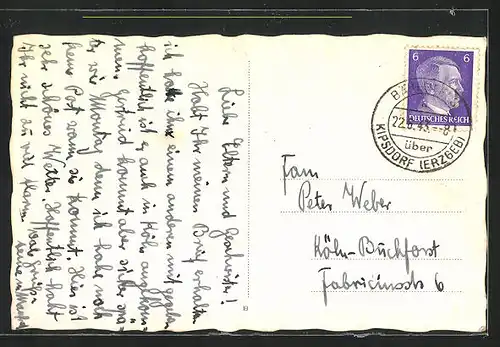 Liebe Eltern und Geschwister!
Habt Ihr meinen Brief erhalten
ich habe ihn einem anderen mitgegeben
hoffentlich ist es auch in Köln angekom=
men. Gertrud kommt aber sicher
Montag denn ich hab noch
keine Post wann sie kommt. Hier ist
sehr schönes Wetter. Hoffentlich habt
Ihr nicht zu viel Alarm.
6 6
DEUTSCHES REICH
22.6.43 -8
über
KIPSDORF (ERZGEB)
Fam
Peter Weber
Köln-Buchforst
Fabricinsstr 6